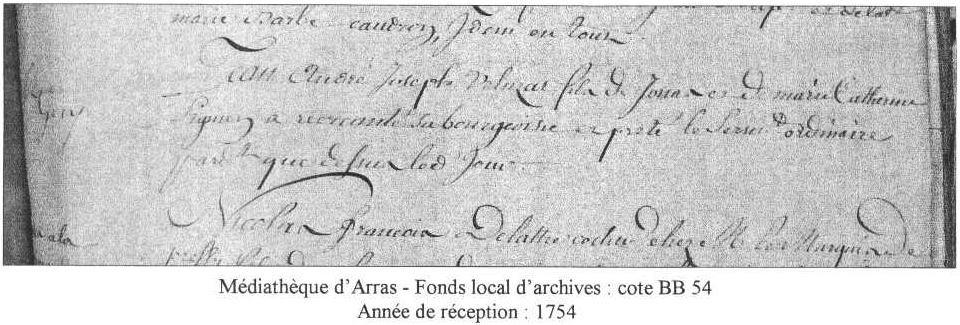 marie Barbe caudron, Idem en tout
Jean André Joseph fils de Jonas et de marie Catherine
a recreanté sa bourgeoisie et preté le serment ordinaire
que dessus led jour
Nicolas françois Delattre cocher chez M. le Marquis de
Médiathèque d'Arras - Fonds local d'archives : cote BB 54
Année de réception : 1754